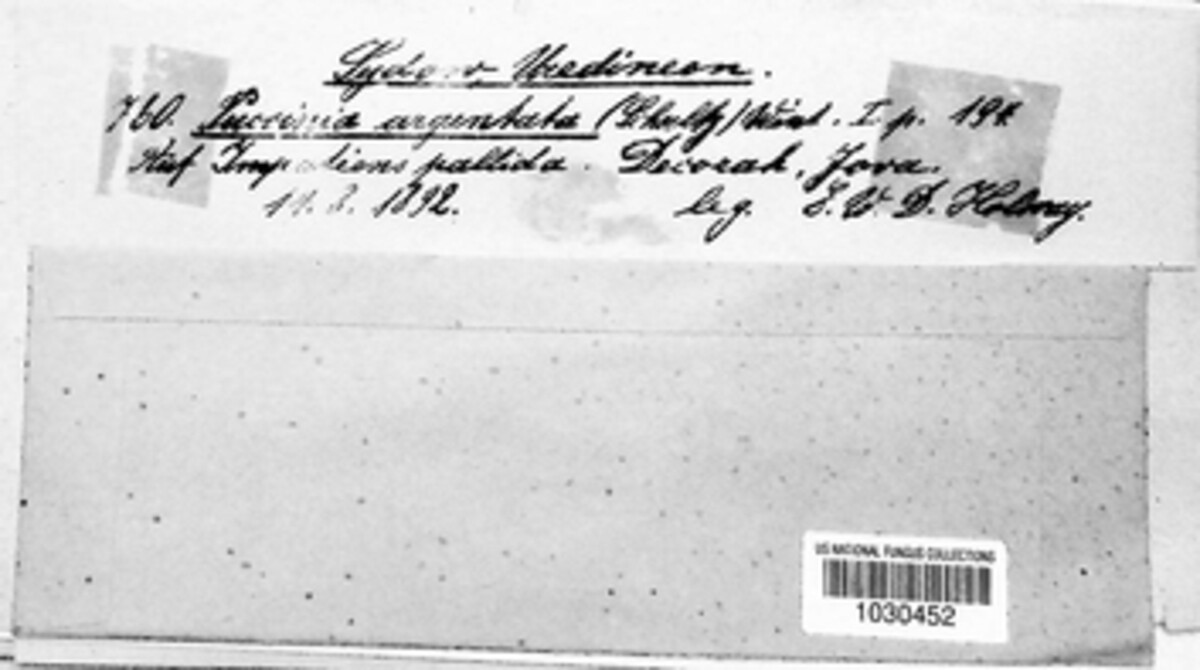 Sydow, Uredineen.
760. Puccinia argentata (Schultz) Wint. I. p. 194.
Auf Impatiens pallida. Decorah, Jova.
1892. leg. E. W. D. Holway.
US NATIONAL FUNGUS COLLECTIONS
1030452